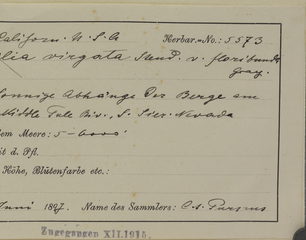 Californ. U.S.A Herbar.-No.: 5573
ilia virgata Steud. v. floribunda
Gray.
Sonnige Abhänge der Berge am
Middle Tule Riv., S. Sier. Nevada
dem Meere: 5-6000'
it d. Pfl.
Höhe, Blütenfarbe etc.:
Juni 1897. Name des Sammlers: C.A. Purpus
Zugegangen XII.1915.